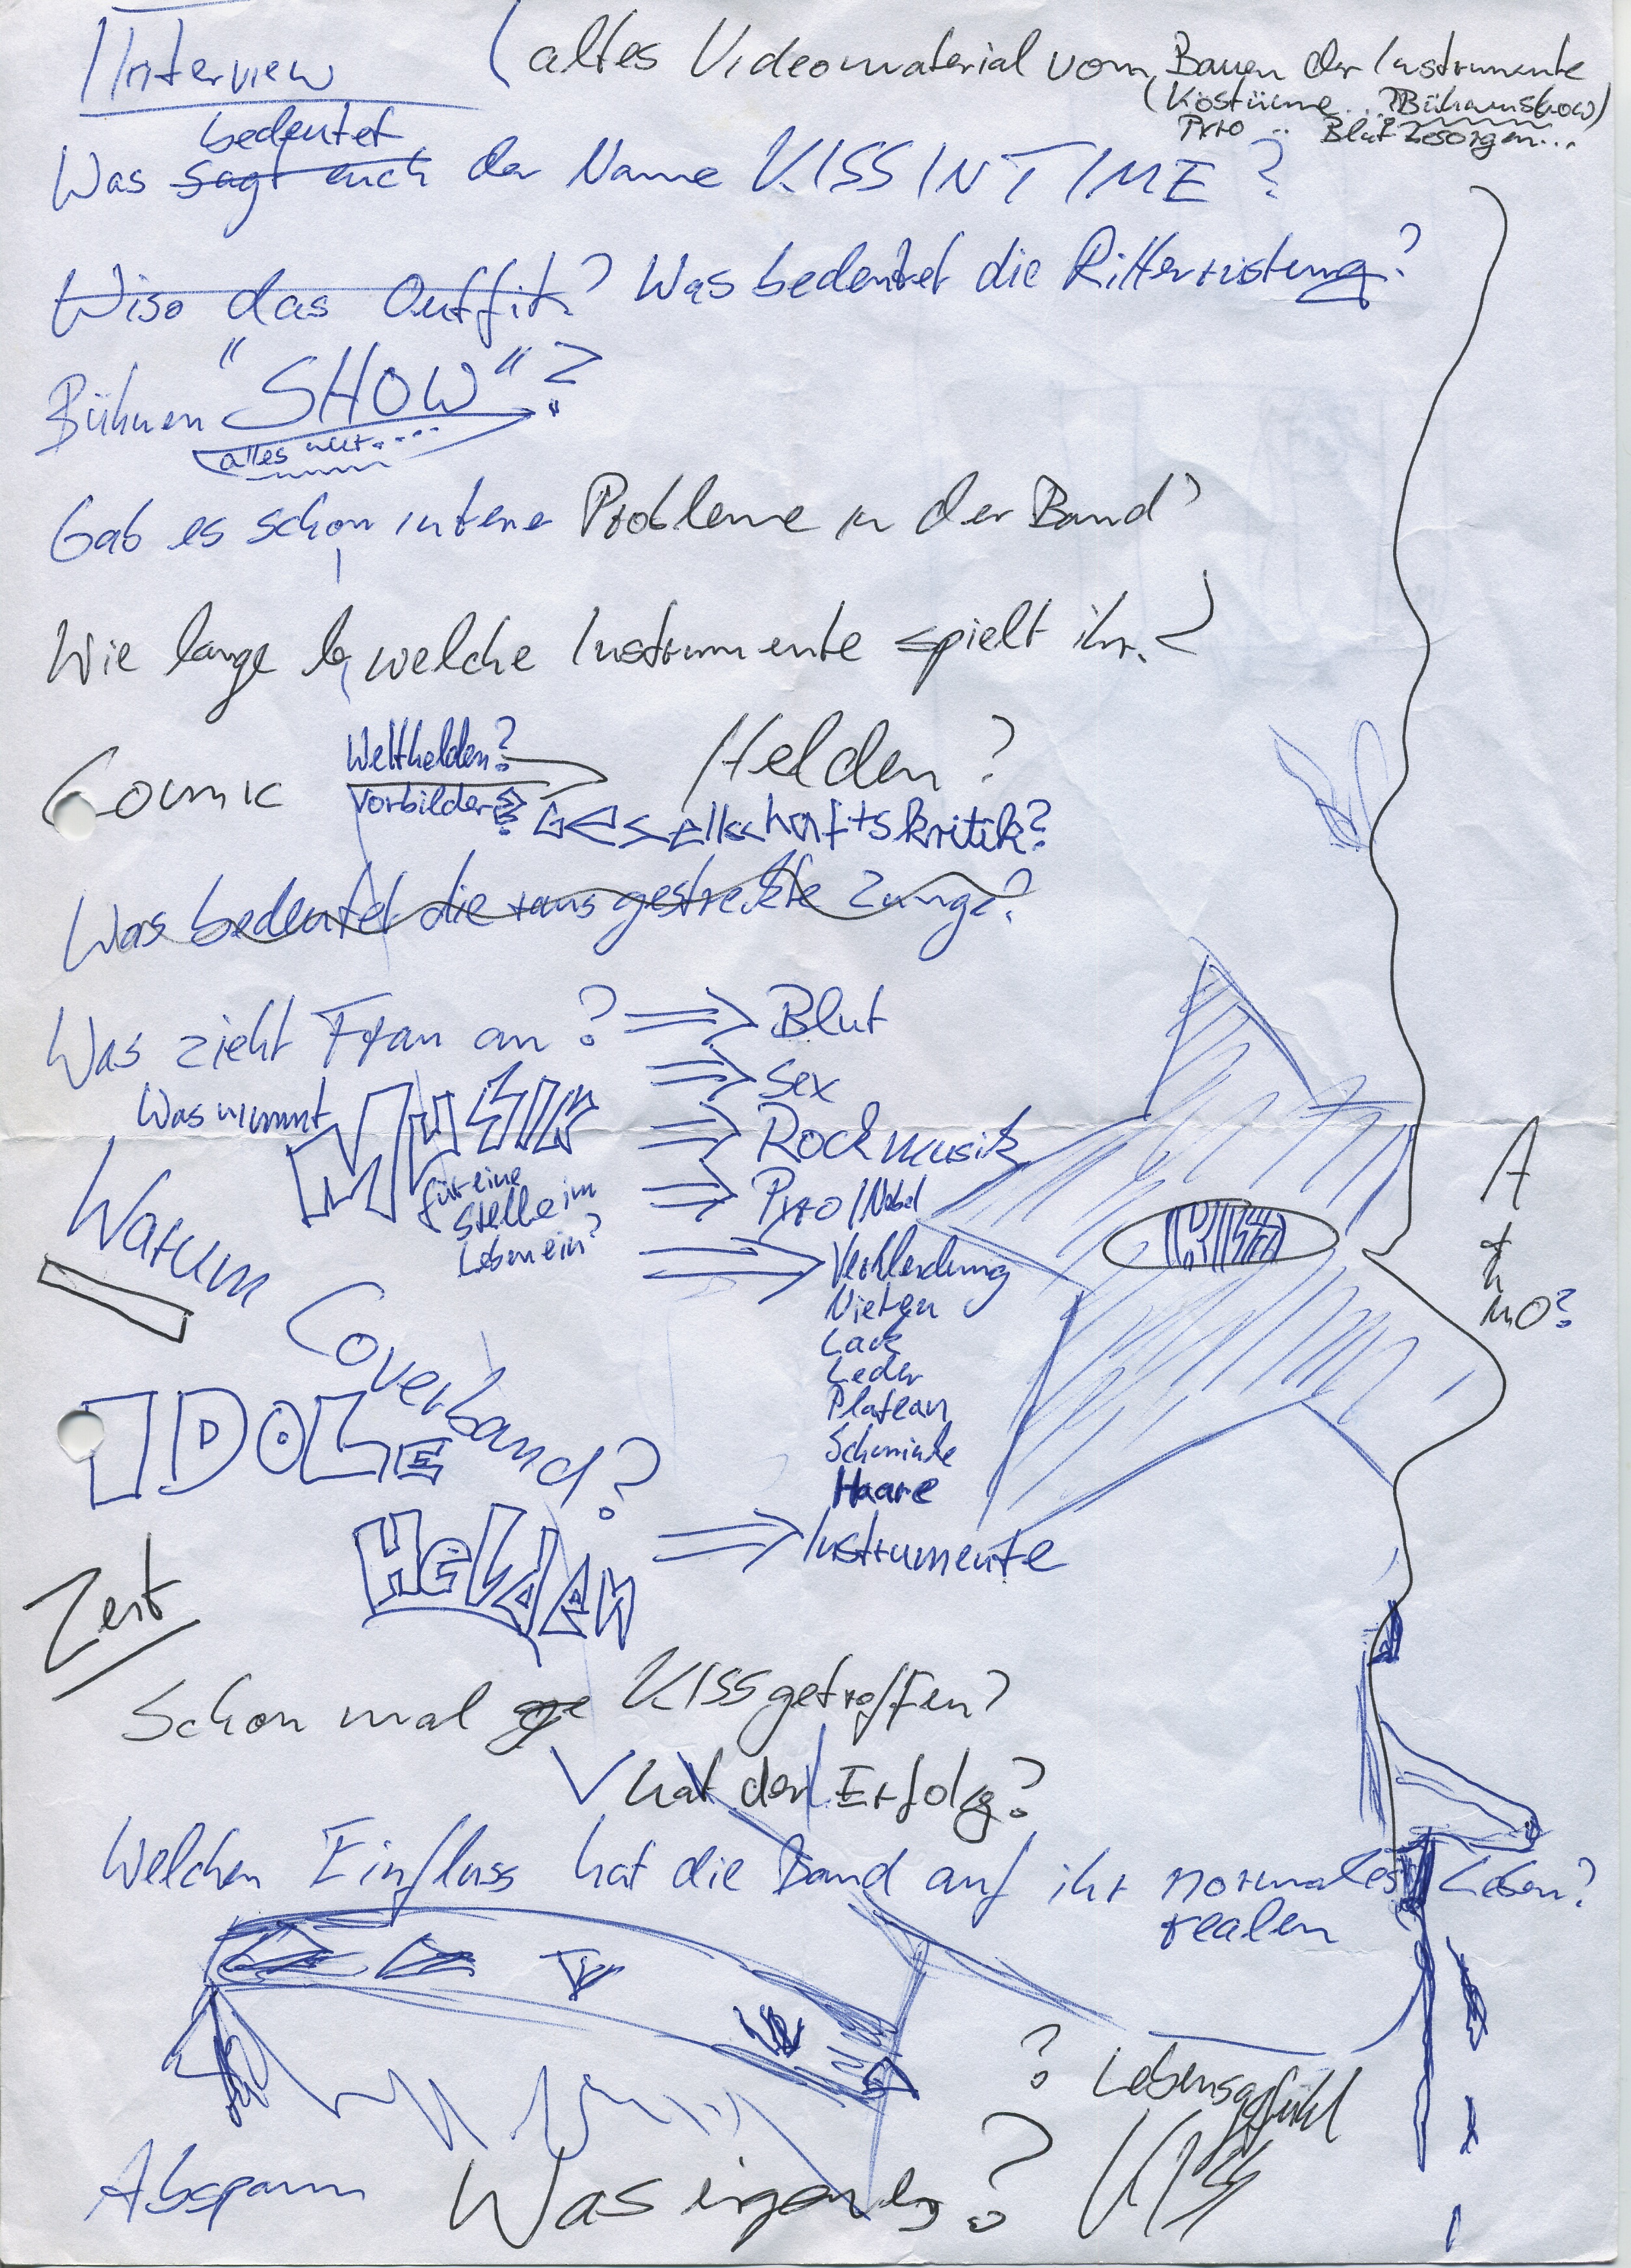 Interview
(altes Videomaterial vom Bauen der Instrumente
(Kostüme... Bühnenshow)
Pyro .. Blut besorgen...
bedeutet
Was sagt euch der Name KISSIN TIME?
Wiso das Outfit? Was bedeutet die Ritterrüstung?
Bühnen "SHOW"?
alles
Gab es schon interne Probleme in der Band?
Wie lange welche Instrumente spielt ihr?
Comic
Welthelden?
Vorbilder?
Helden?
GESellschaftskritik?
Was bedeutet die rausgestreckte Zunge?
Was zieht Fran an? ⇒ Blut
⇒ Sex
⇒ Rockmusik
⇒ Pyro/Nebel
⇒ Verkleidung
Nieten
Lack
Leder
Plateau
Schminke
Haare
⇒ Instrumente
Was nimmt
MUSIK
für eine
Stelle im
Leben ein?
KISS
Warum Coverband?
IDOLE
Helden
Zeit
Schon mal ge KISS getroffen?
hat der Erfolg?
Welchen Einfluss hat die Band auf ihr normales Leben?
realen
? Lebensgefühl
KISS
Abspann
Was eigenes?